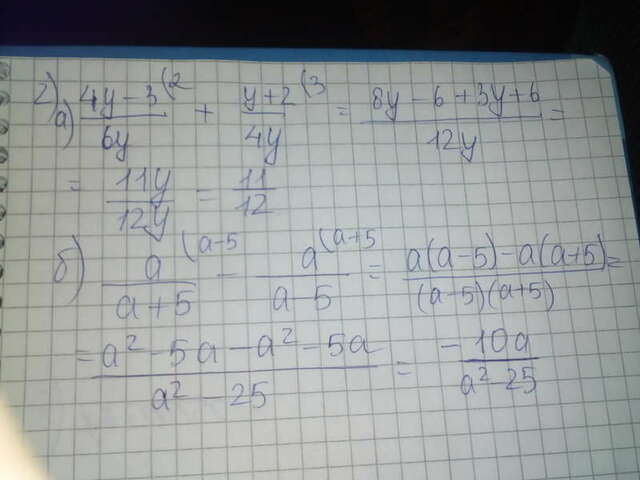 2) а) (4y - 3)/(6y) (2 + (y + 2)/(4y) (3 = (8y - 6 + 3y + 6)/(12y) =
= (11y)/(12y) = 11/12
б) a/(a + 5) (a - 5 - a/(a - 5) (a + 5 = (a(a - 5) - a(a + 5))/((a - 5)(a + 5)) =
= (a² - 5a - a² - 5a)/(a² - 25) = - (10a)/(a² - 25)